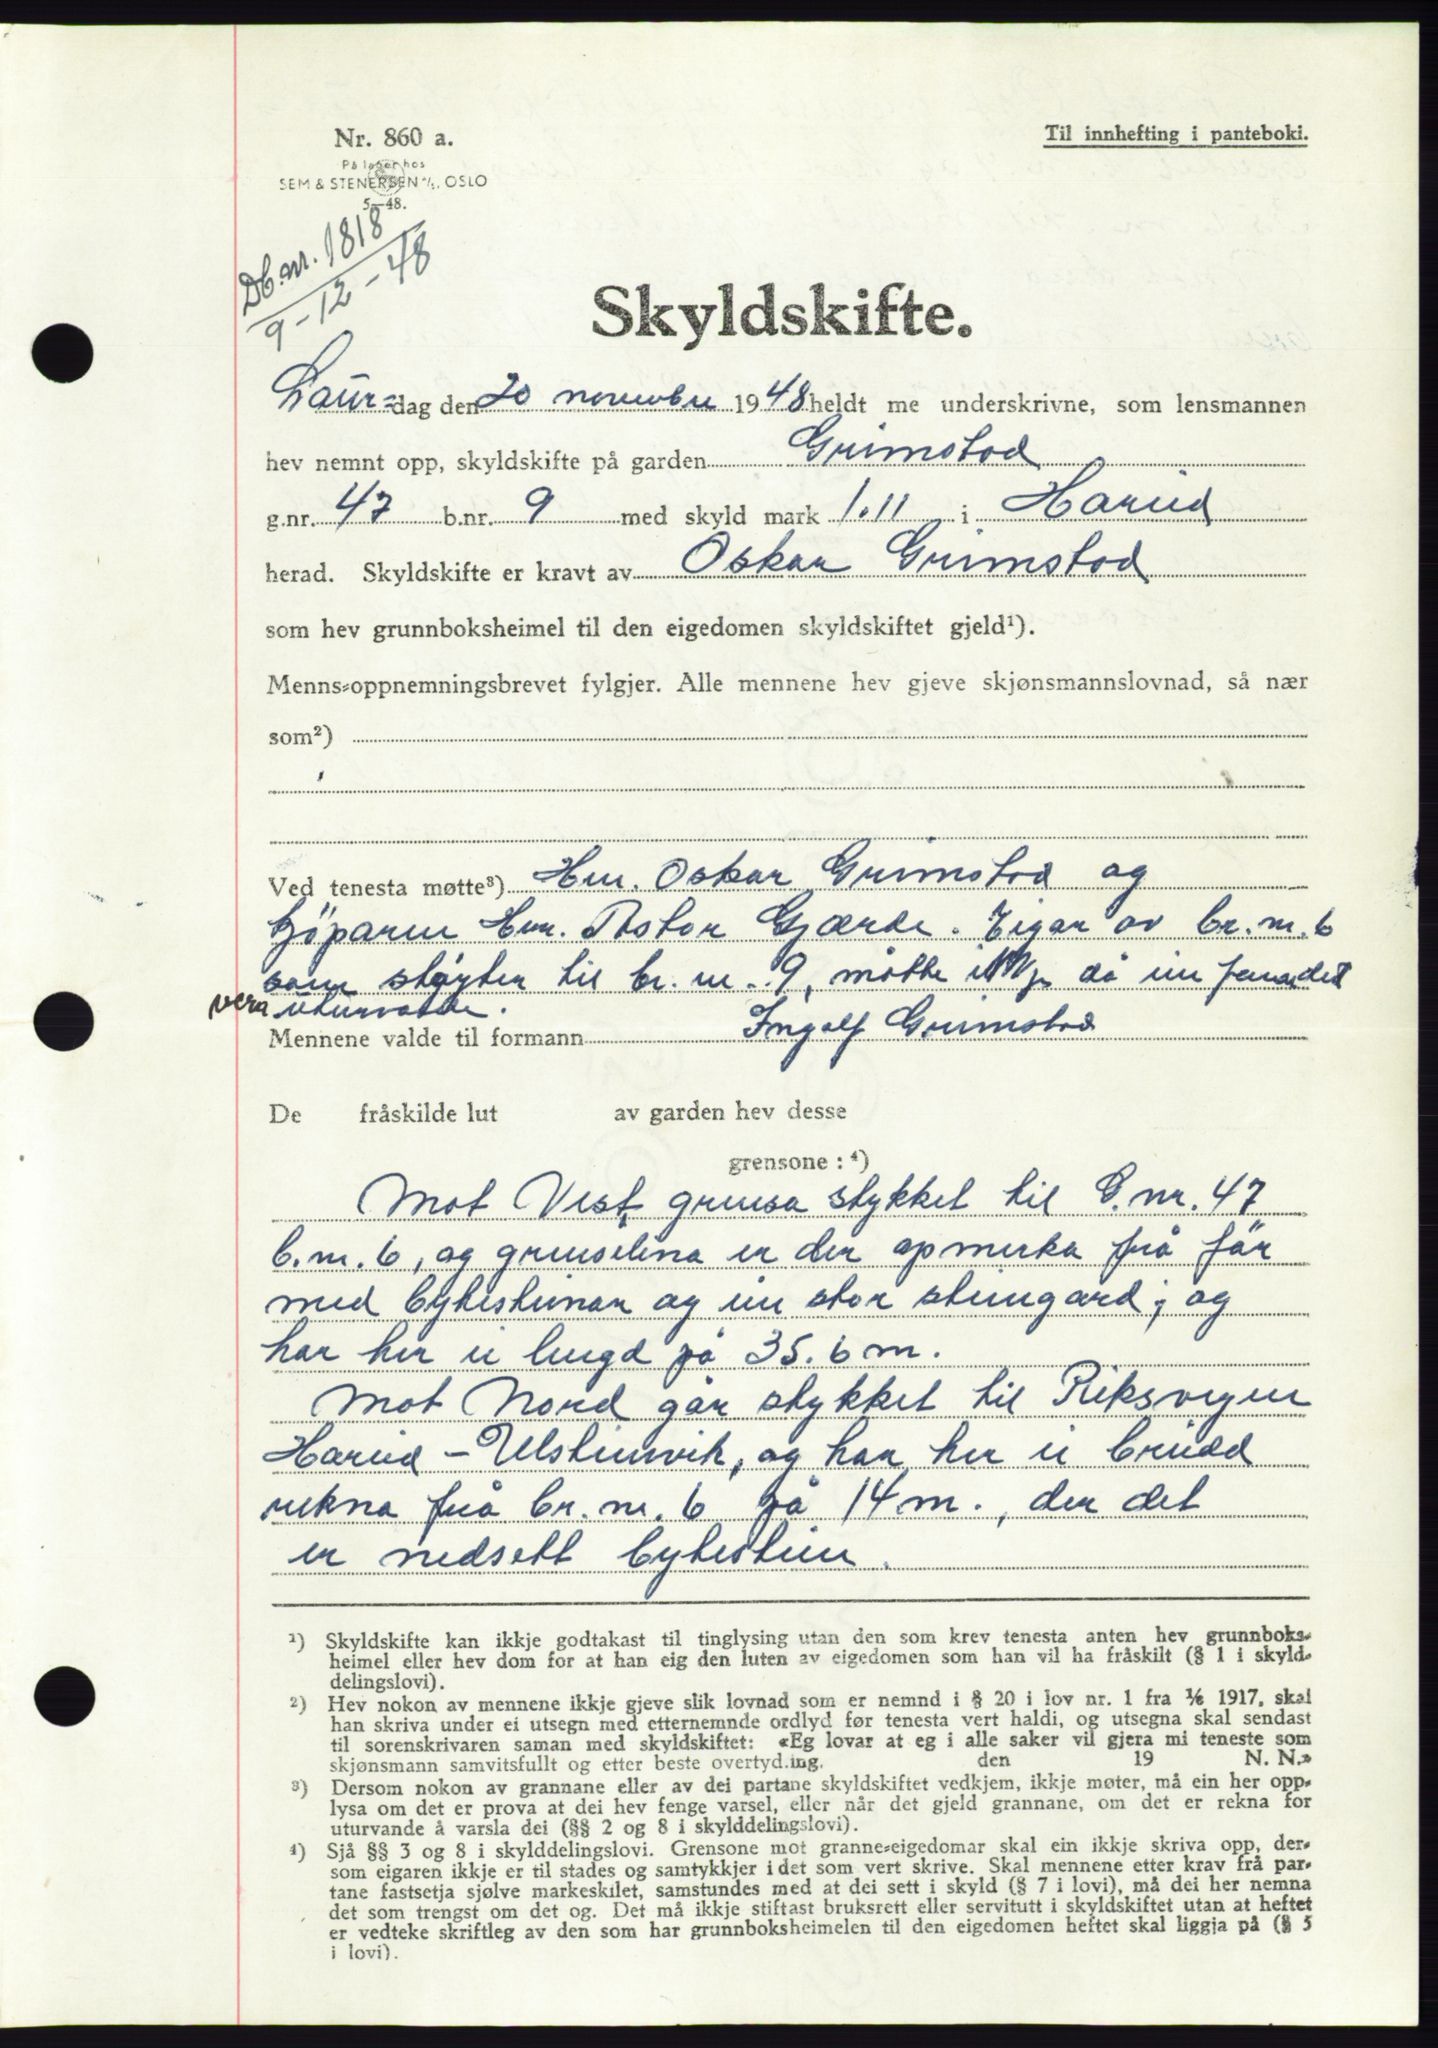 Nr. 860 a.
På lager hos
SEM & STENERSEN A/S, OSLO
5—48.
Til innhefting i panteboki.
Db.nr. 1818
9-12-48
Skyldskifte.
Laur=dag den 20 novembre 1948 heldt me underskrivne, som lensmannen
hev nemnt opp, skyldskifte på garden Grimstad
g.nr. 47 b.nr. 9 med skyld mark 1.11 i Hareid
herad. Skyldskifte er kravt av Oskar Grimstad
som hev grunnboksheimel til den eigedomen skyldskiftet gjeld¹).
Menns-oppnemningsbrevet fylgjer. Alle mennene hev gjeve skjønsmannslovnad, så nær
som²)
Ved tenesta møtte³) Hrr. Oskar Grimstad og
kjöparen Hrr. Astor Gjærde. Eigar av br.nr. 6
som støyter til br. nr. 9, møtte ikkje då en fann det
vera uturvande.
Mennene valde til formann Ingolf Grimstad
De fråskilde lut av garden hev desse
grensone : ⁴)
Mot Vest grensa stykket til G.nr. 47
b.nr. 6, og grenselina er der opmerka frå før
med bytesteinar og ein stor steingard; og
har her ei lengd på 35.6 m.
Mot Nord går stykket til Riksvegen
Hareid - Ulsteinvik, og har her ei breidd
rekna frå br. nr. 6 på 14 m., der det
er nedsett bytestein.
¹) Skyldskifte kan ikkje godtakast til tinglysing utan den som krev tenesta anten hev grunnboks-
heimel eller hev dom for at han eig den luten av eigedomen som han vil ha fråskilt (§ 1 i skyld-
delingslovi).
²) Hev nokon av mennene ikkje gjeve slik lovnad som er nemnd i § 20 i lov nr. 1 fra 1/6 1917, skal
han skriva under ei utsegn med etternemnde ordlyd før tenesta vert haldi, og utsegna skal sendast
til sorenskrivaren saman med skyldskiftet: «Eg lovar at eg i alle saker vil gjera mi teneste som
skjønsmann samvitsfullt og etter beste overtyd.ing. den 19 N. N.»
³) Dersom nokon av grannane eller av dei partane skyldskiftet vedkjem, ikkje møter, må ein her opp-
lysa om det er prova at dei hev fenge varsel, eller når det gjeld grannane, om det er rekna for
uturvande å varsla dei (§§ 2 og 8 i skylddelingslovi).
⁴) Sjå §§ 3 og 8 i skylddelingslovi. Grensone mot granne-eigedomar skal ein ikkje skriva opp, der-
som eigaren ikkje er til stades og samtykkjer i det som vert skrive. Skal mennene etter krav frå par-
tane fastsetja sjølve markeskilet, samstundes med at dei sett i skyld (§ 7 i lovi), må dei her nemna
det som trengst om det og. Det må ikkje stiftast bruksrett eller servitutt i skyldskiftet utan at heftet
er vedteke skriftleg av den som har grunnboksheimelen til den eigedomen heftet skal liggja på (§ 5
i lovi).